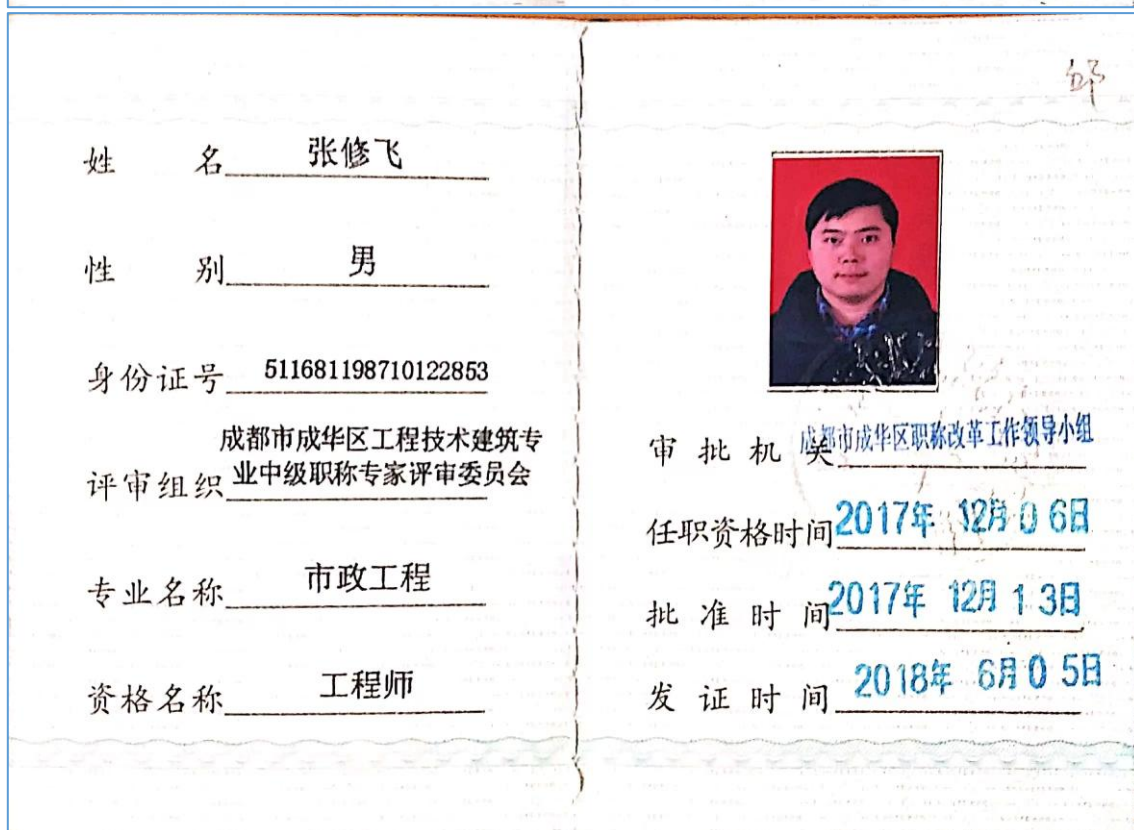 姓名 张修飞
性别 男
身份证号 511681198710122853
成都市成华区工程技术建筑专
评审组织 业中级职称专家评审委员会
专业名称 市政工程
资格名称 工程师
审批机关 成都市成华区职称改革工作领导小组
任职资格时间 2017年 12月 06日
批准时间 2017年 12月 13日
发证时间 2018年 6月 05日